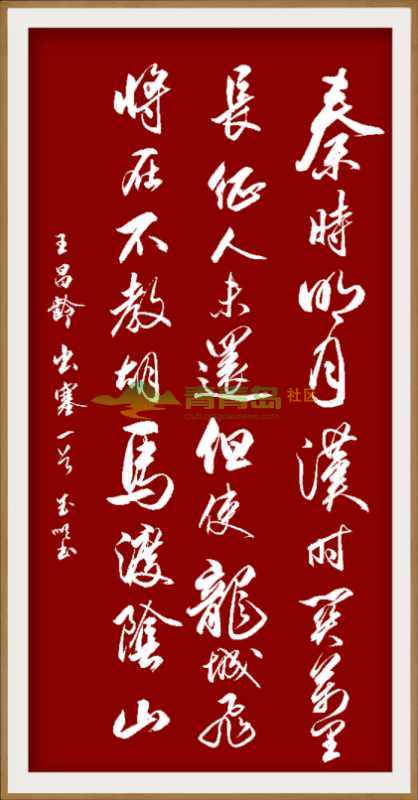 秦時明月漢时關萬里
長征人未還但使龍城飛
將在不教胡馬渡陰山
王昌齡出塞一首
青青岛社区
club.qingdaonews.com